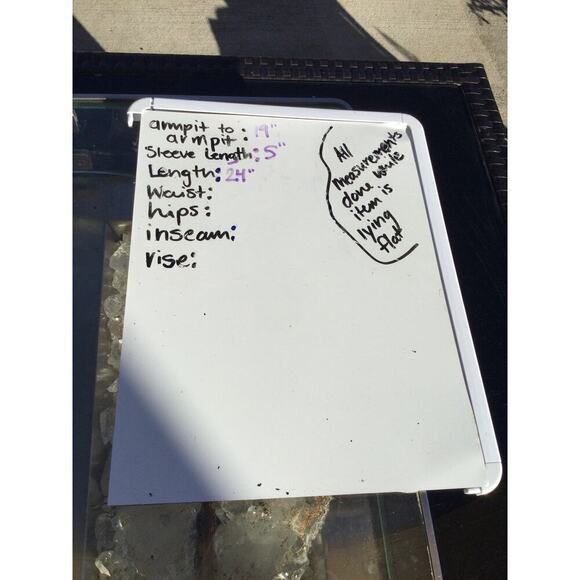 armpit to : 19"
armpit
Sleeve Length: 5"
Length: 24"
Waist:
hips:
inseam:
rise:
All
measurements
done while
item is
lying
flat